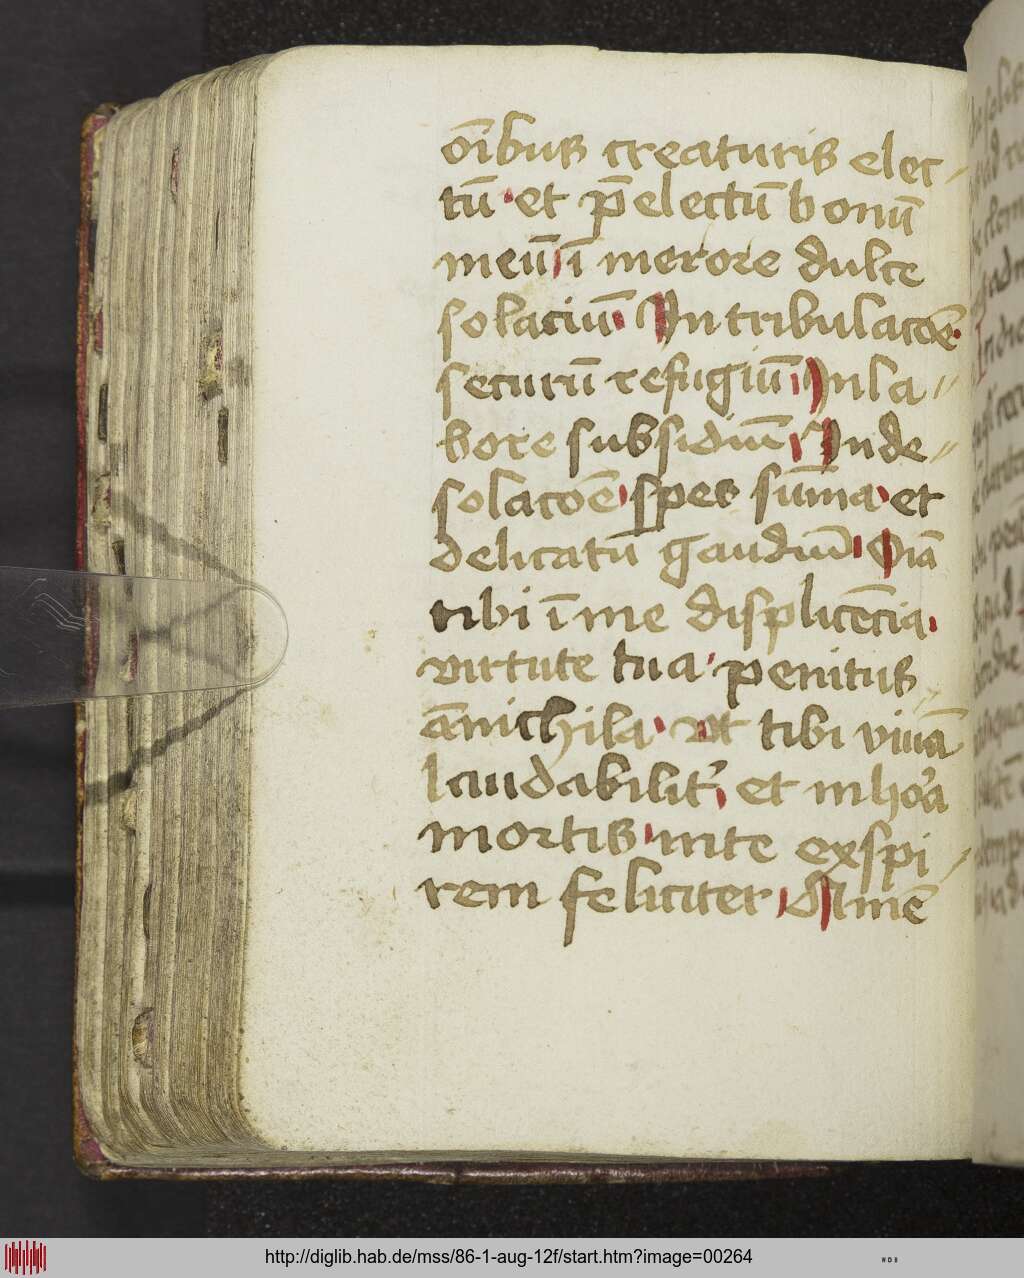 oı̄bus creaturis elec-
tū et p̄electū bonū
meū ī merore dulce
solaciū In tribulacōe
securū refugiū In la=
bore subsidiū In de=
solacōe spes sūma et
delicatū gaudiū Oīa
tibi ī me displicēcia
virtute tua penitus
ānichila ut tibi viuā
laudabilit᷑ et in hoᷓa
mortis in te exspi-
rem feliciter Amē
http://diglib.hab.de/mss/86-1-aug-12f/start.htm?image=00264